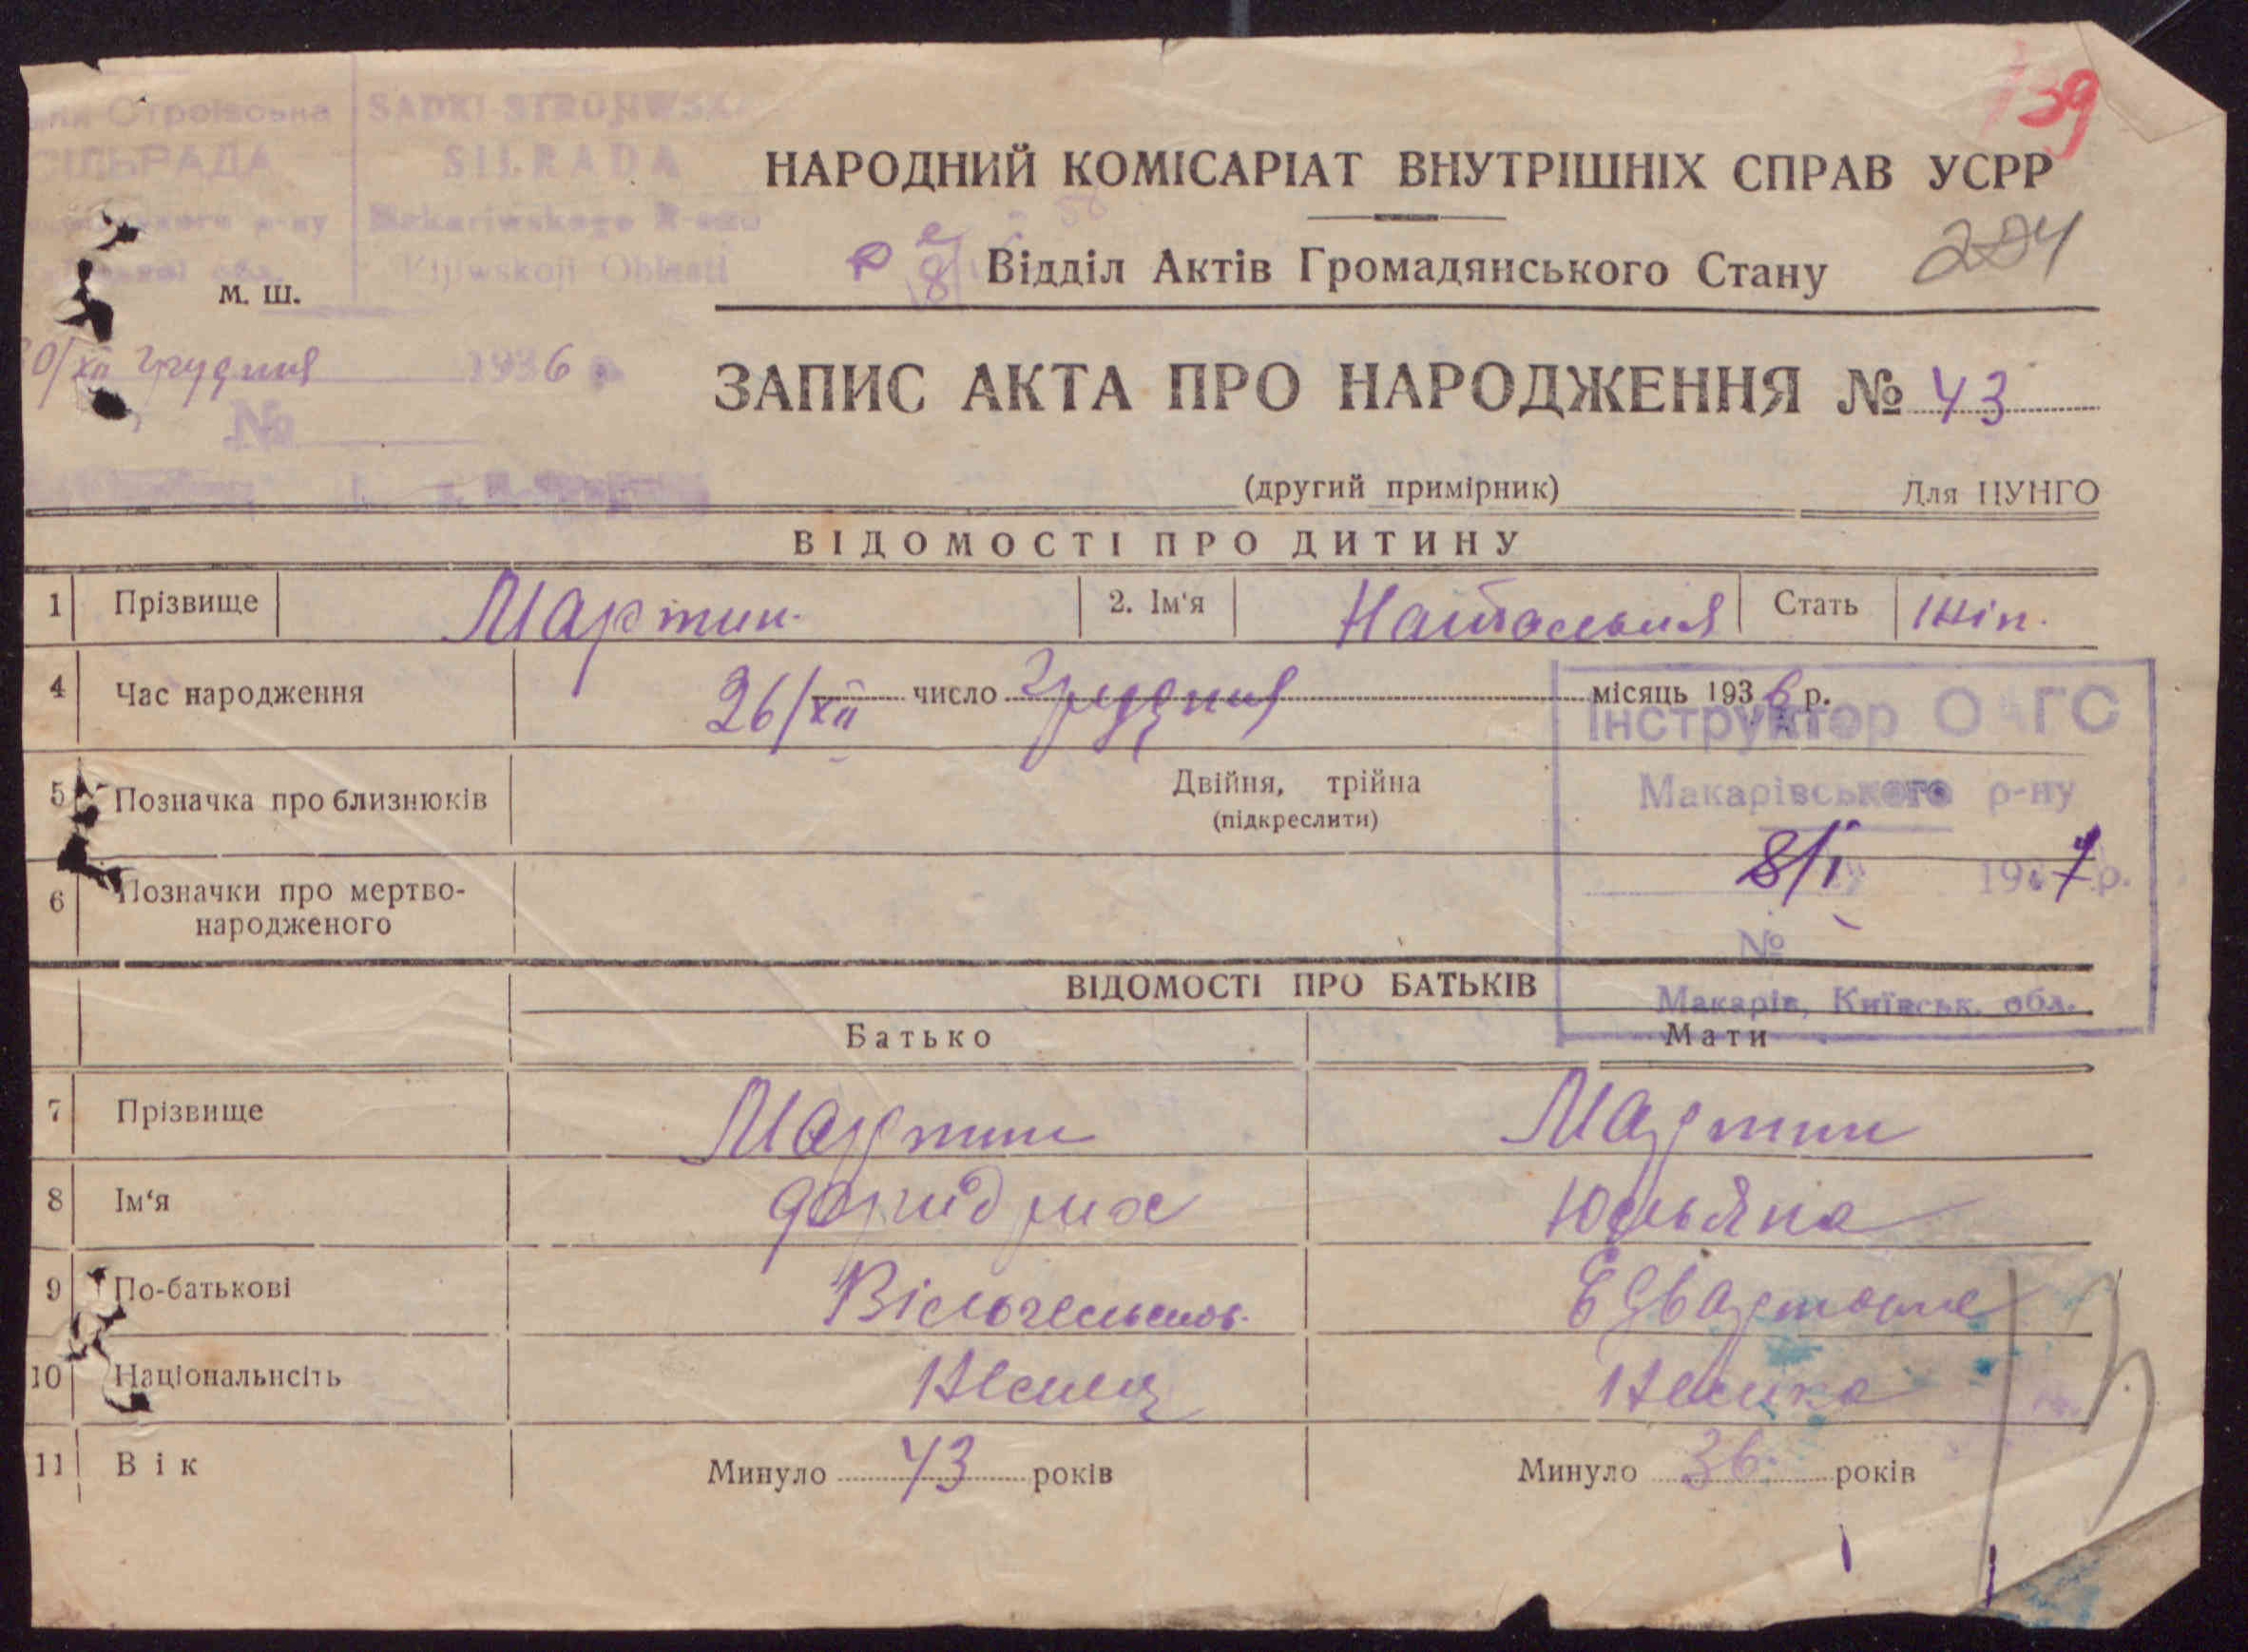 Строївська SADKI STROJIWSKA
СІЛЬРАДА SILRADA
р-ну Makariwskogo R-nu
обл. Kyjiwskoji Oblasti
м. ш.
30/XII грудня 1936 р.
№
139
НАРОДНИЙ КОМІСАРІАТ ВНУТРІШНІХ СПРАВ УСРР
Відділ Актів Громадянського Стану
284
ЗАПИС АКТА ПРО НАРОДЖЕННЯ № 43
(другий примірник) Для ЦУНГО
ВІДОМОСТІ ПРО ДИТИНУ
1 Прізвище Мартин. 2. Ім'я Натальія Стать Жін.
4 Час народження 26/XII число грудня місяць 1936 р.
Інструктор О ГС
Макарівського р-ну
8/I 1937 р.
№
Макарів, Київськ. обл.
5 Позначка про близнюків Двійня, трійна
(підкреслити)
6 Позначки про мертво-
народженого
ВІДОМОСТІ ПРО БАТЬКІВ
Батько Мати
7 Прізвище Мартин Мартин
8 Ім'я Фридрих Юльяна
9 По-батькові Вільгельмов. Едвартовна
10 Національнсіть Немец Немка
11 Вік Минуло 43 років Минуло 36 років